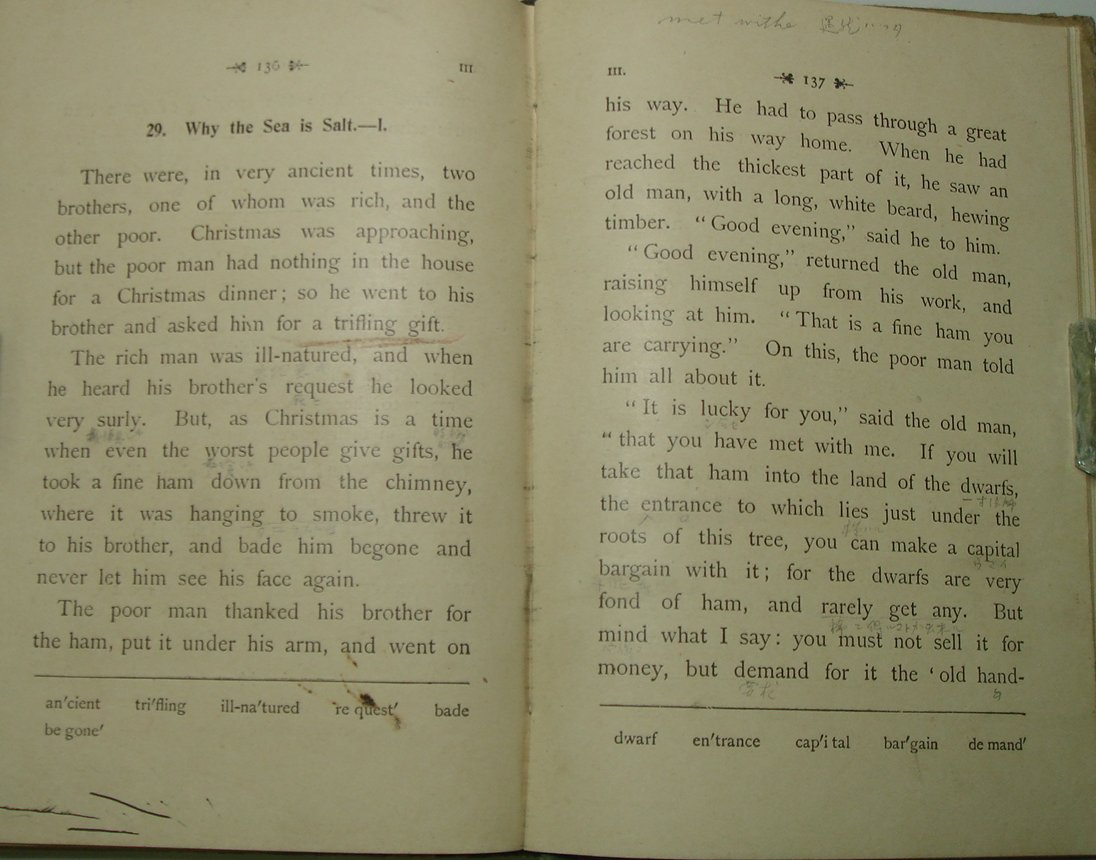 136 III
29. Why the Sea is Salt.—I.
There were, in very ancient times, two
brothers, one of whom was rich, and the
other poor. Christmas was approaching,
but the poor man had nothing in the house
for a Christmas dinner; so he went to his
brother and asked him for a trifling gift.
The rich man was ill-natured, and when
he heard his brother's request he looked
very surly. But, as Christmas is a time
when even the worst people give gifts, he
took a fine ham down from the chimney,
where it was hanging to smoke, threw it
to his brother, and bade him begone and
never let him see his face again.
The poor man thanked his brother for
the ham, put it under his arm, and went on
an'cient tri'fling ill-na'tured re quest' bade
be gone'
met withe
III. 137
his way. He had to pass through a great
forest on his way home. When he had
reached the thickest part of it, he saw an
old man, with a long, white beard, hewing
timber. "Good evening," said he to him.
"Good evening," returned the old man,
raising himself up from his work, and
looking at him. "That is a fine ham you
are carrying." On this, the poor man told
him all about it.
"It is lucky for you," said the old man,
"that you have met with me. If you will
take that ham into the land of the dwarfs,
the entrance to which lies just under the
roots of this tree, you can make a capital
bargain with it; for the dwarfs are very
fond of ham, and rarely get any. But
mind what I say: you must not sell it for
money, but demand for it the 'old hand-
dwarf en'trance cap'i tal bar'gain de mand'